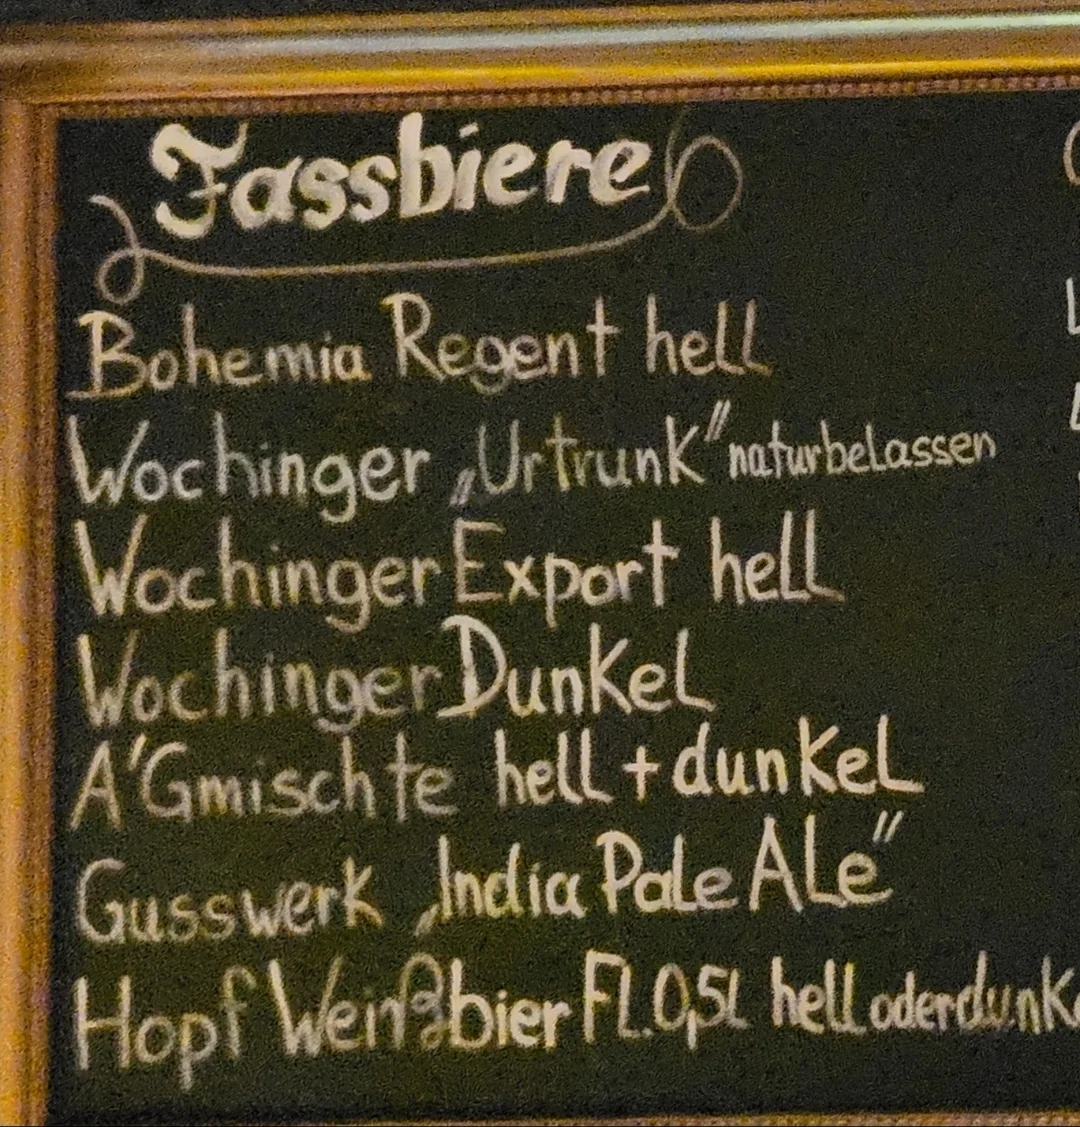 Fassbiere
Bohemia Regent hell
Wochinger „Urtrunk" naturbelassen
Wochinger Export hell
Wochinger Dunkel
A'Gmischte hell + dunkel
Gusswerk „India Pale Ale"
Hopf Weißbier Fl. 0,5l hell oder dunke